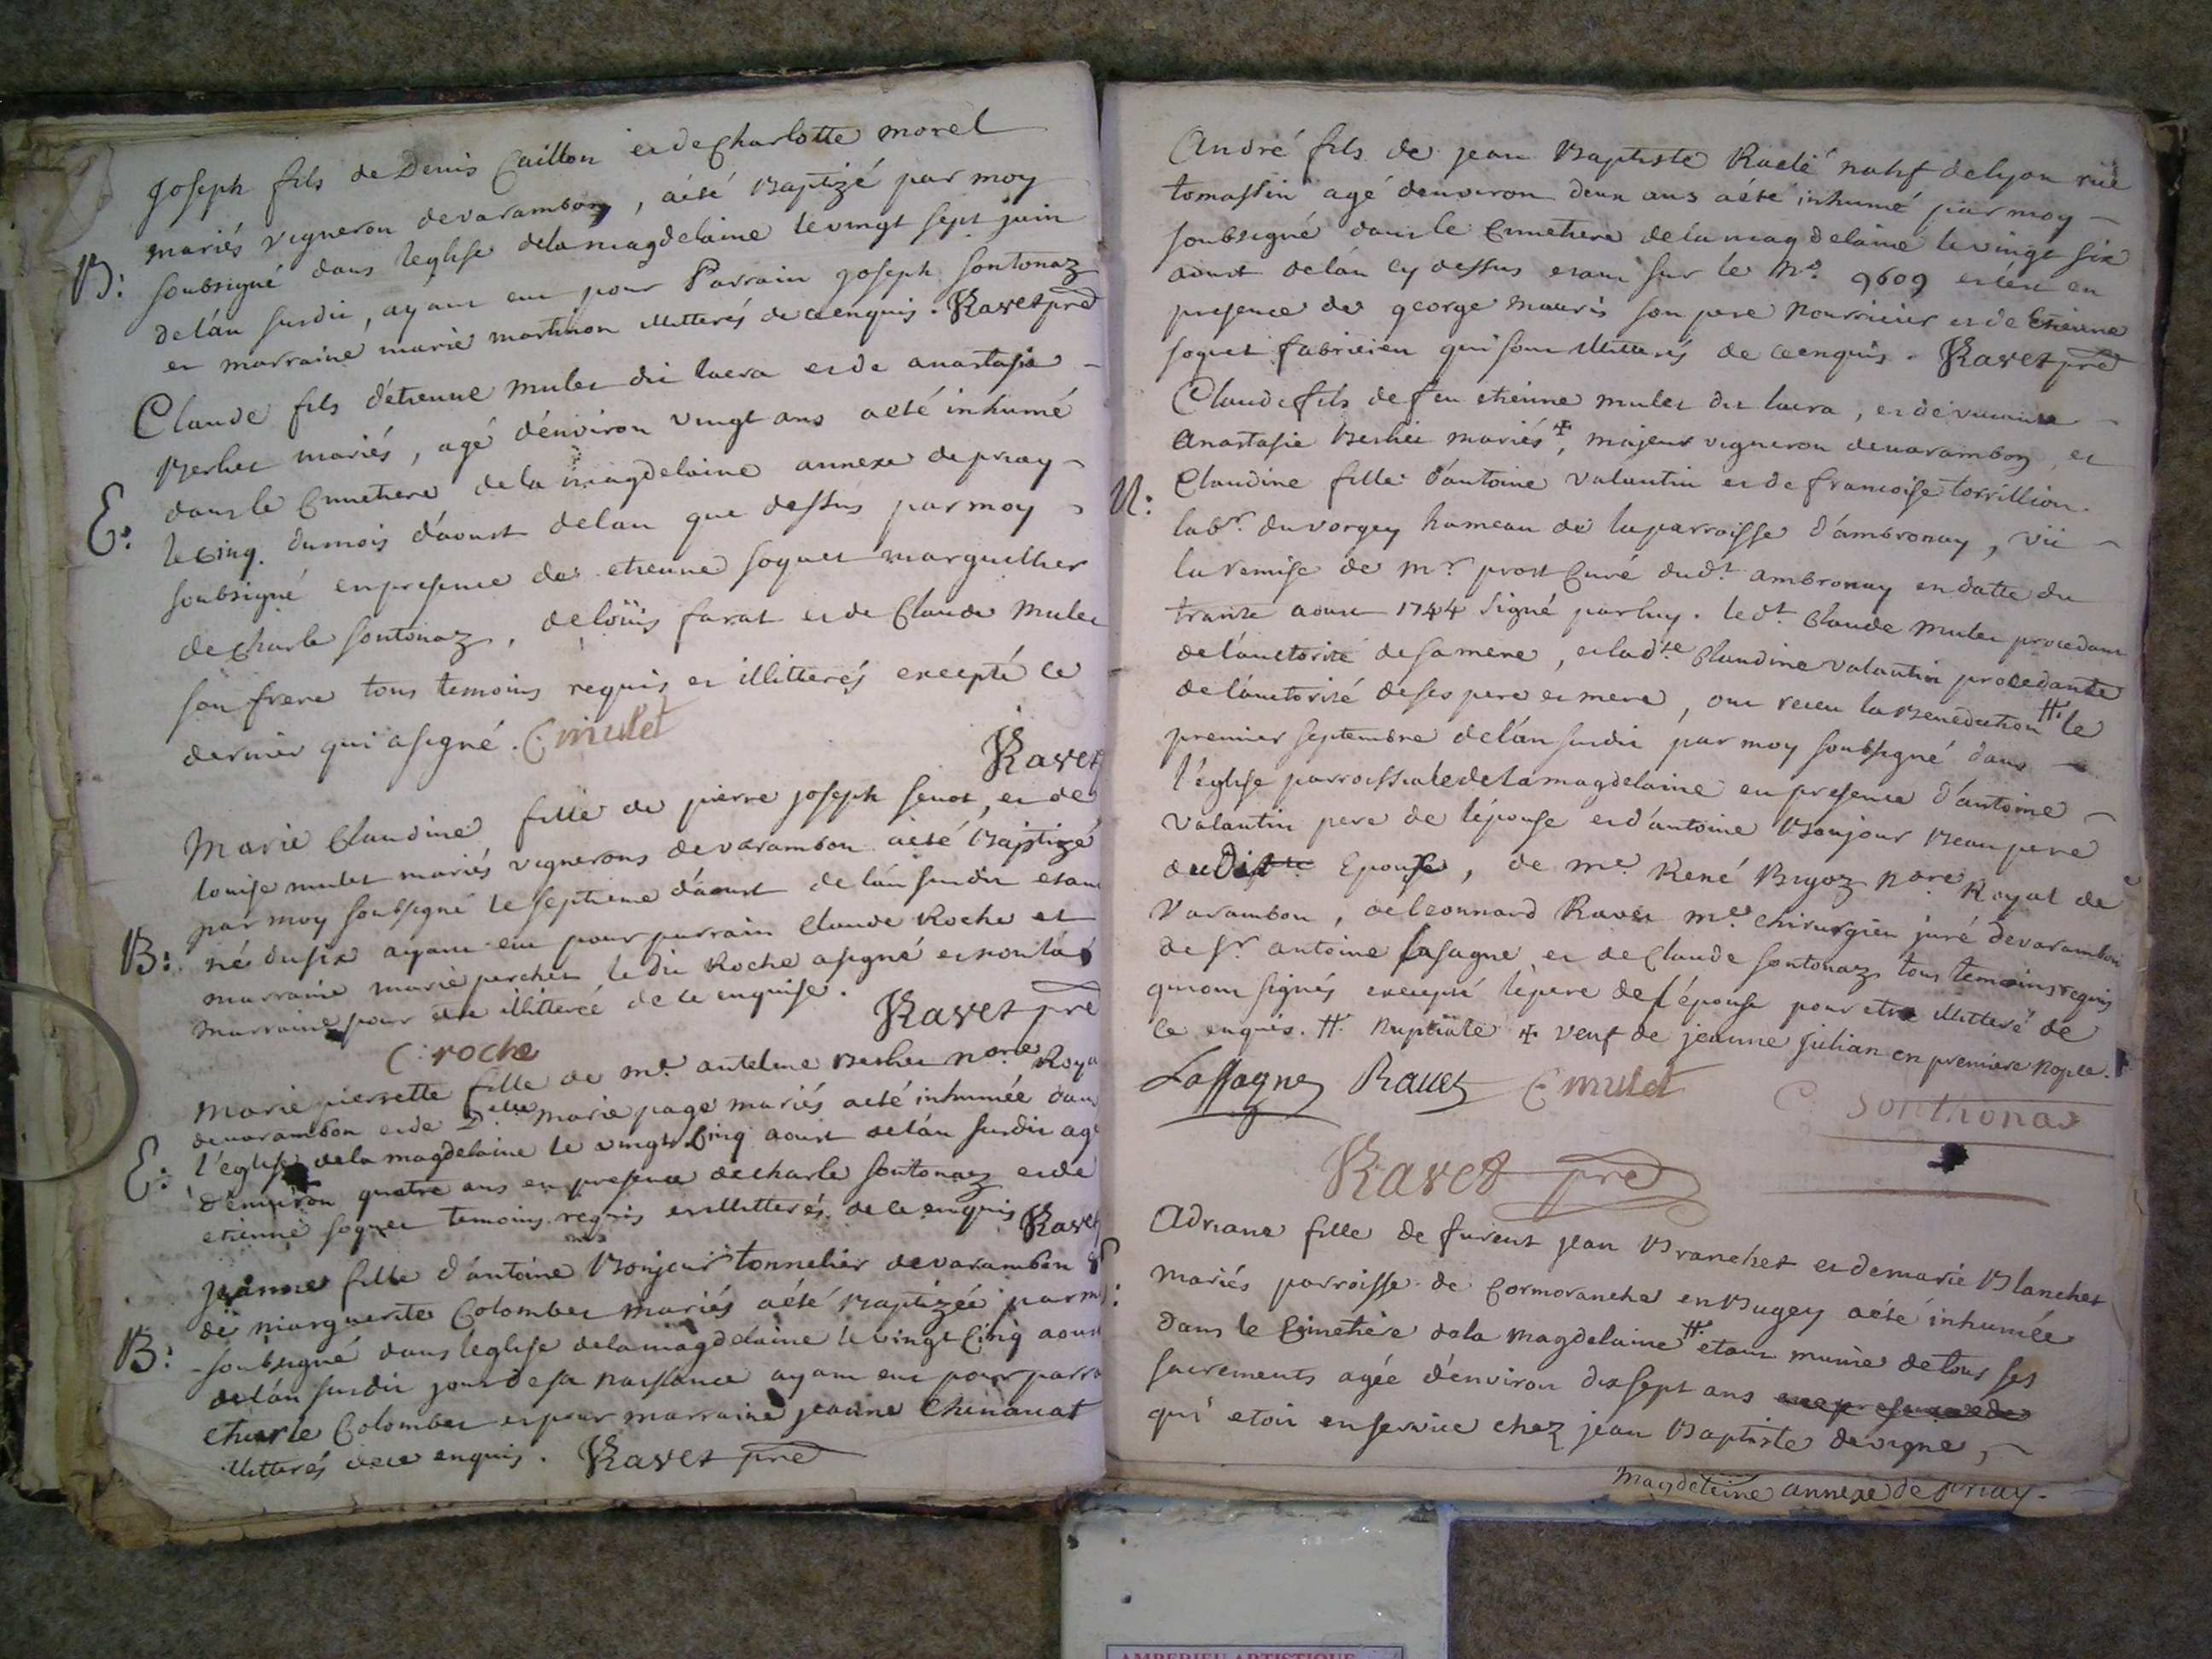 Joseph fils de Denis Caillon et de Charlotte morel
mariés vigneron de varambon, a été Baptizé par moy
B:
soubsigné dans leglise de la magdelaine le vingt sept juin
de lán susdit, ayant eu pour Parrain joseph sontonaz
et marraine marie martinon illitterés de ce enquis. Ravet pre
Claude fils détienne mulet dit lacra et de anastasie
Berliet mariés, agé dénviron vingt ans a eté inhumé
dans le Cimetiere de la magdelaine annexe de priay
E:
le Cinq. du mois dáoust de lan que dessus par moy
soubsigné en presence de etienne soquet marguillier
de Charle sontonaz, de loüis farat et de Claude Mulet
son frere tous temoins requis et illitterés excepté ce
dernier qui a signé. C mulet
Ravet
Marie Claudine fille de pierre joseph senot, et de
louise mulet mariés vignerons de varambon a été Baptizé
par moy soubsigné le septieme dáoust de lán susdit etant
B:
né du six ayant eu pour parrain Claude Roche et
marraine marie perchet le dit Roche a signé et non la
marraine pour etre illitteré de ce enquise. Ravet pre
C: roche
Marie pierrette fille de me. antelme Berliet nore Roya
de varambon et de Dlle marie page mariés a eté inhumée dans
E:
l'eglise de la magdelaine le vingt Cinq aoust de lán susdit agé
dénviron quatre ans en presence de charle sontonaz et de
etienne soquet temoins requis et illitterés de ce enquis Ravet
jeanne fille d'antoine Bonjour tonnelier de varambon &
de marguerite Colombet mariés a été Baptizée par m
B:
soubsigné dans léglise de la magdelaine le vingt Cinq aoust
de lán susdit jour de sa naissance ayant eu pour parra
Charle Colombet et pour marraine jeanne Chenavat
illitterés de ce enquis. Ravet pre
André fils de jean Baptiste Raclé natif de lyon rüe
tomassin agé denviron deux ans a été inhumé par moy
soubsigné dans le Cimetiere de la magdelaine le vingt six
aoust de lán cy dessus etant sur le No. 9609 et en
presence de george mauris son pere Nourricier et de Etienne
soquet fabricien qui sont illitterés de ce enquis. Ravet pre
Claude fils de feu etienne mulet dit lacra, et de vivante
Anastasie Berliet mariés ✠, majeur vigneron de varambon, et
Claudine fille d'antoine valantin et de francoise torrillion
labr. du vorgey hameau de la parroisse d'ambronay, vü
la remise de mr. prost Curé dudt. ambronay en datte du
trante aoust 1744 signé par luy. le dt. Claude mulet procedant
de láuctorité de sa mere, et lad.te Claudine valantin procedante
de láuctorité de ses pere et mere, ont receu la Benediction #. le
premier septembre de lán susdit par moy soubsigné dans
l'église parroissiale de la magdelaine en presence d'antoine
valantin pere de lépouse et d'antoine Bonjour Beau pere
du dit Epoux, de me. René Bigoz nore. Royal de
varambon, de leonnard Ravet me. chirurgien juré de varambon
de sr. antoine lasagne et de Claude sontonaz tous temoins requis
qui ont signés excepté le pere de l'épouse pour etre illitteré de
ce enquis. #. Nuptiale ✠ veuf de jeanne julian en premiere nopce.
Lassagne Ravet C mulet
C. Sonthonas
Ravet pre
Adriane fille de furent jean Branchet et de marie Blanchet
mariés parroisse de Cormoranche en Bugey a été inhumée
dans le Cimetière de la magdelaine #. etant munie de tous ses
sacrements agée d'environ dix sept ans
qui etoit en service chez jean Baptiste devigne,
Magdeleine annexe de priay.
AMBERIEU ARTISTIQUE